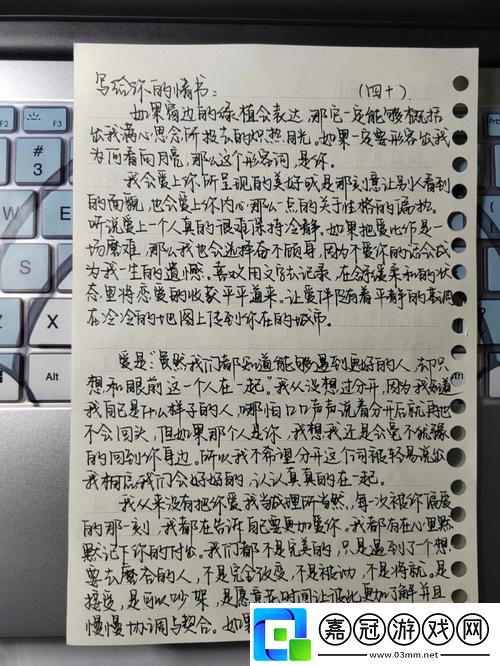 写给你的情书： （四十）
如果窗边的绿植会表达，那它一定能够概括
出我满心思念所投去的炽热目光。如果一定要形容出我
为何看向月亮，那么这个形容词，是你。
我会爱上你所呈现的美好或是那刻意让别人看到
的面貌，也会爱上你内心那么一点的关于性格的偏执。
听说爱上一个人真的很难保持冷静。如果把爱比作是一
场磨难，那么我也会选择奋不顾身，因为不爱你的话会成
为我一生的遗憾。喜欢用文字去记录，在舒缓柔和的状
态里将恋爱的收获平平道来。让爱伴随着平静的基调
在冷冷的地图上传到你在的城市。
爱是：“虽然我们都知道能够遇到更好的人，却只
想和眼前这一个人在一起。”我从没想过分开，因为我知道
我自己是什么样子的人，哪怕口口声声说着分开后就再也
不会回头，但如果那个人是你，我想我还是会毫不犹豫
的回到你身边。所以我不希望分开这个词被轻易说出
我相信我们会好好的，认认真真的在一起。
我从来没有把你爱我当成理所当然，每一次被你偏爱
的那一刻，我都在告诉自己要更加爱你。我都有在心里默
默记下你的付出。我们都不是完美的，只是遇到了个想
要去磨合的人，不是完全改变，不是被动，不是将就。是
接受，是可以吵架，是愿意花时间让彼此更加了解并且
慢慢协调与契合。如果
嘉冠游戏网
www.03mm.net
F2
F3
#
3
E
D
Alt
PrtSc